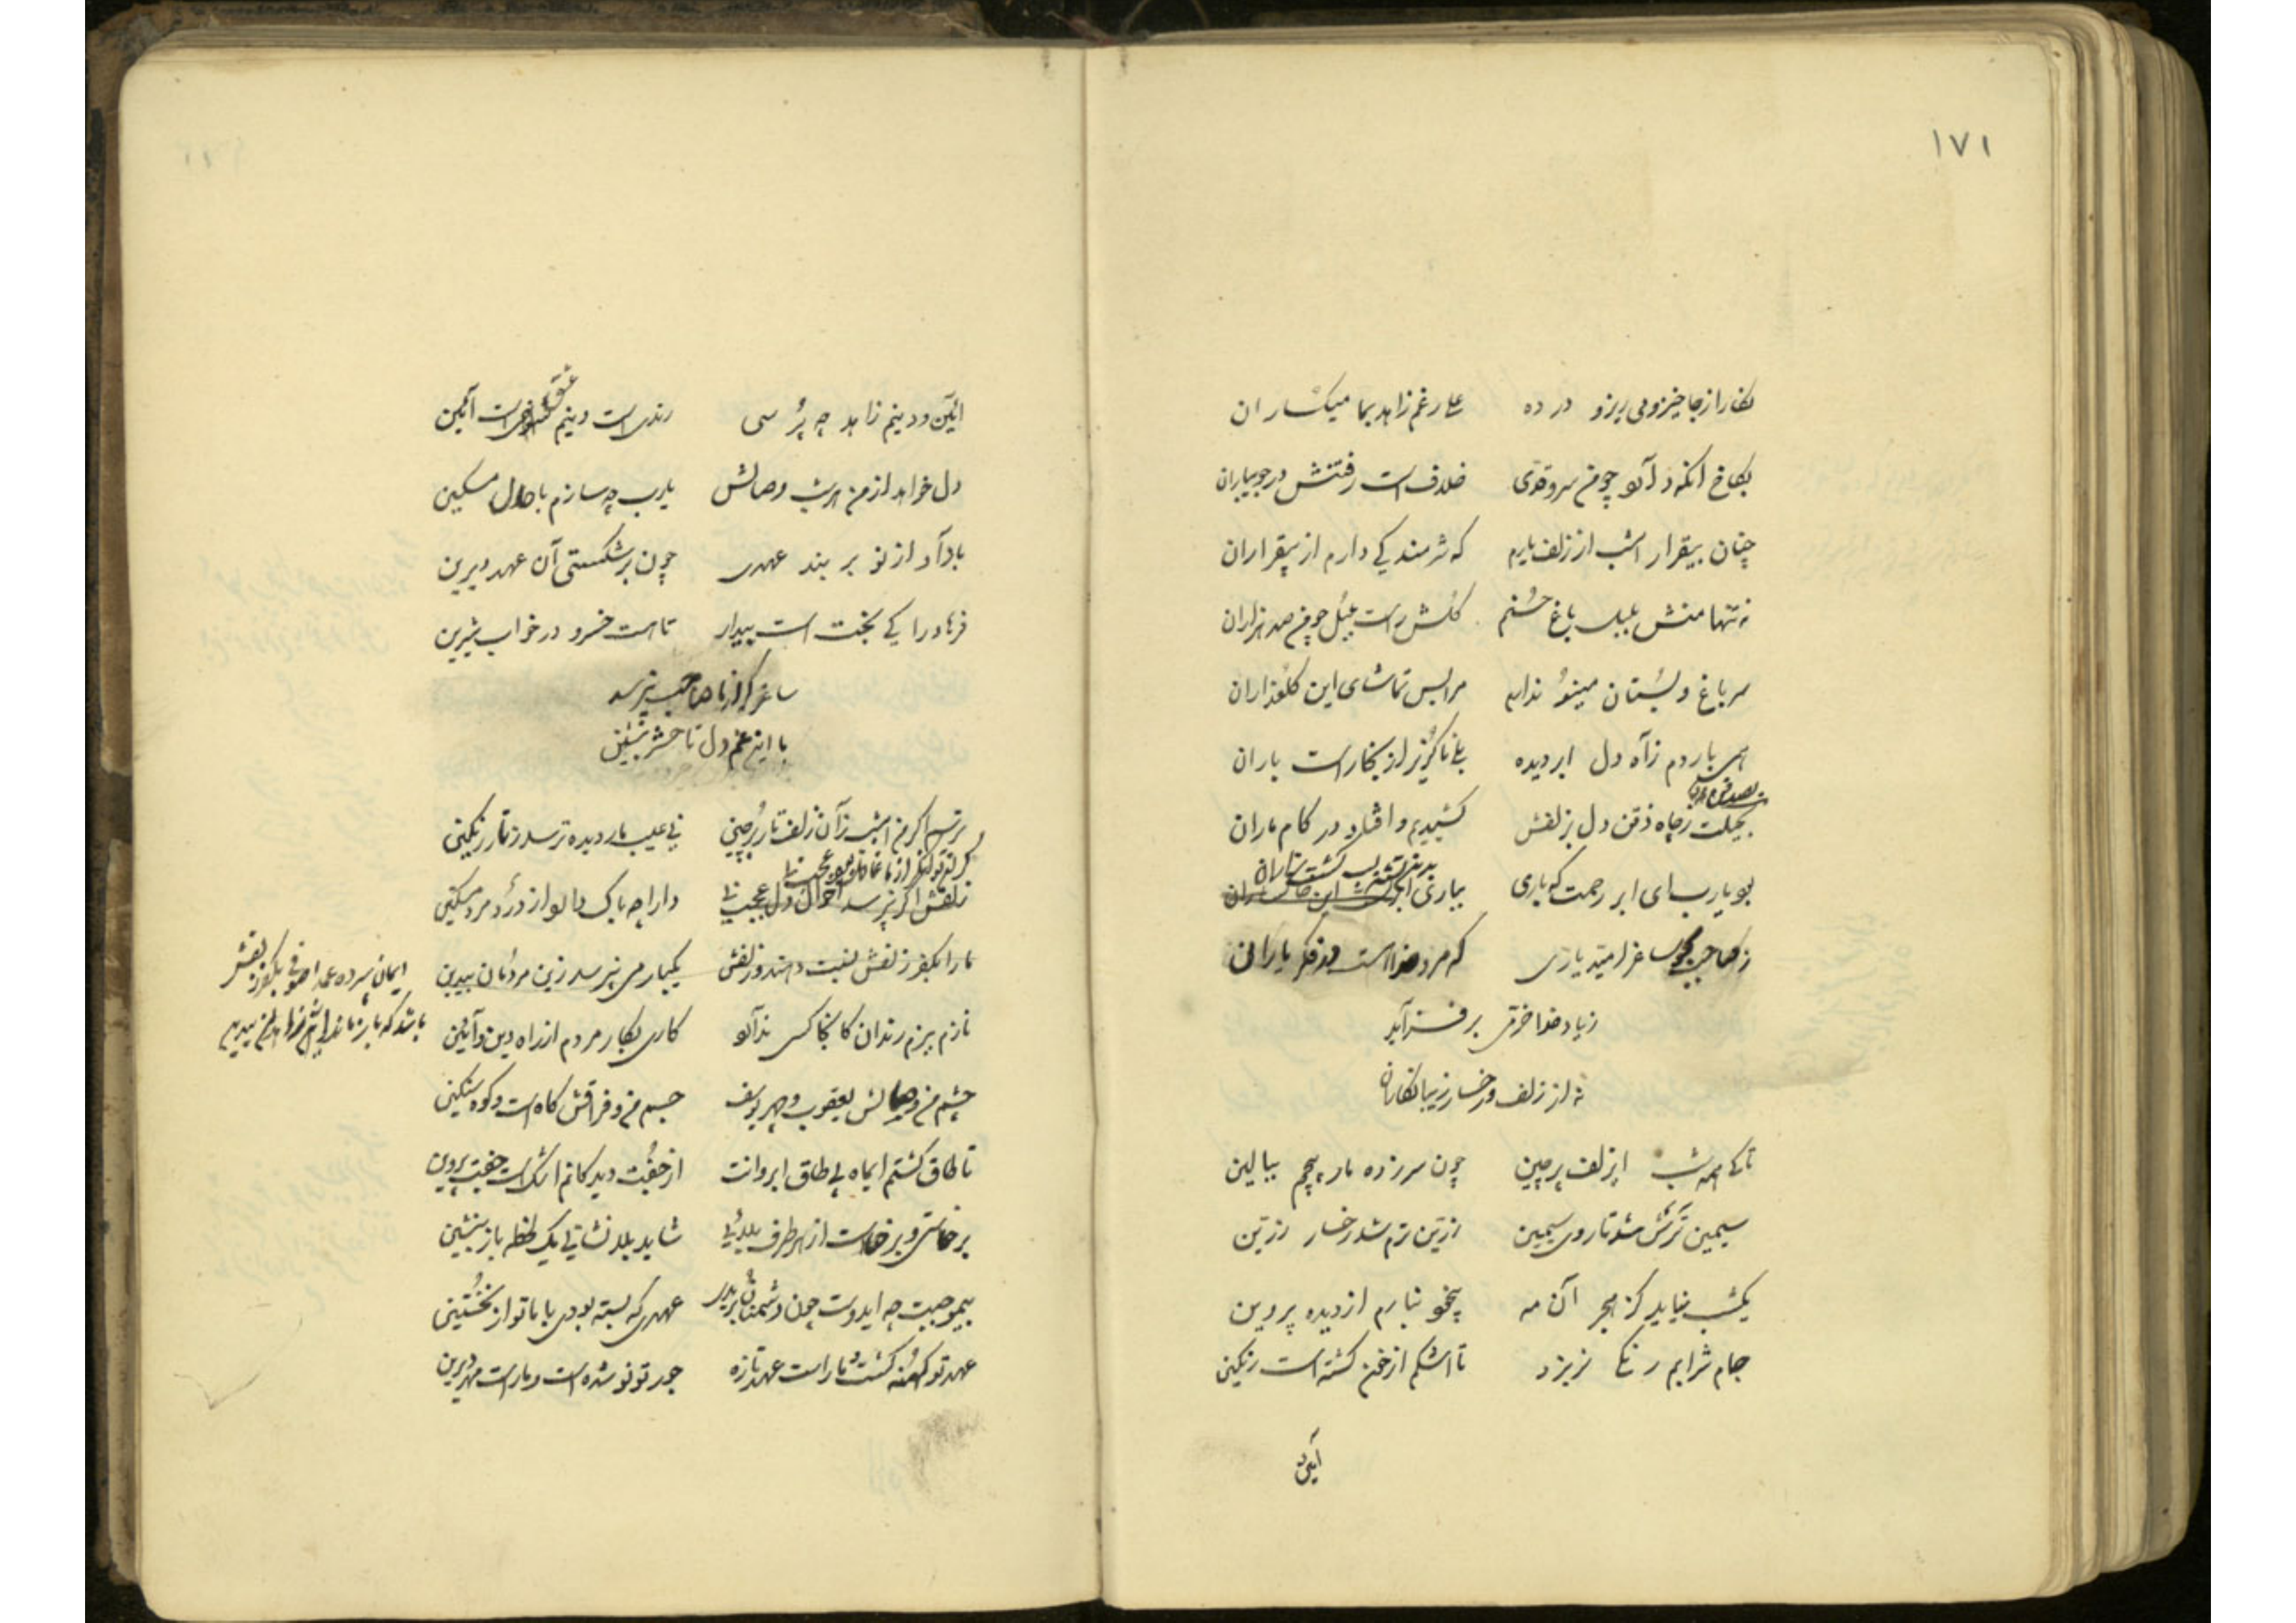 ۱۷۱
نگارا ز جا خیز و می ریز و در ده علی رغم زاهد بما میکساران
بکاخ آنکه د آئو چو من سرو قدی خلاف است رفتنش در جویباران
چنان بیقرار امشب از زلف یارم که شرمندیگی دارم از بیقراران
نه تنها منش بلبل باغ حسنم گلش راست بلبل چو من صد هزاران
سر باغ و بستان مینو ندارم مرا بس تماشای این گلعذاران
همی بارد م ز آه دل ابر دیده بلی ناگزیر از بخار است باران
بحیلت ز چاه ذقن دل بزلفش کشیدیم و افتاد در کام ماران
بو یارب ای ابر رحمت که باری بباری
ز صاحب ساغر امید یاری که مرد خدا است در فکر یاران
ز یاد خدا خرقی بر فسزآید
نه از زلف و رخسار زیبا نگاران
تا کی همه شب ای زلف پرچین چون سر زده مار پیچم ببالین
سیمین ترش شد تا روی سیمین زرین ترم شد رخسار زرین
یکشب نیاید کز هجر آن مه بیخو نبارم از دیده پروین
جام شرابم رنگی نریزد تا اشکم از خون گشته است رنگین
آیین
آئین و دینم زاهد چه پرسی رندی است دینم عشق است آئین
دل خواهد از من هر شب وصالش یارب چه سازم با دل مسکین
یاد آر از نو بر بند عهدی چون بر شکستی آن عهد دیرین
فرهاد را کی بخت است بیدار تا هست خسرو در خواب شیرین
ساغر گر از ما صاحب نپرسد
با این غم دل تا حشر بنشین
ترسم اگر من امشب ز آن زلف تار پرچین نی عیب مار دیده ترسد ز تار رنگین
زلفش اگر نپرسد احوال دل عجب نی دارا چه باک دارد از درد مرد مسکین
ما را بکفر زلفش نسبت دهند و زلفش یکبار می نپرسد زین مردمان بیدین
ایمان سپرده عمدا صوفی بکفر زلفش
نازم ببزم رندان کانجا کسی ندارد کاری بکار مردم از راه دین و آئین
چشم من و وصالش یعقوب و چهر یوسف جسم من و فراقش کاه است و کوه سنگین
تا طاق گشتم ایماه بی طاق ابروانت از جفت دیدگانم اشک است جفت پروین
برخاستی و برخاست از هر طرف بلائی شاید بلا نشانی یک لحظه باز بنشین
بیموجبت چه ایدوست چون دشمنان بریدی عهدی که بسته بودی با ما تو از نخستین
عهد تو کهنه گشت و ما راست عهد تازه جور تو نو شده است و ما راست مهر دیرین